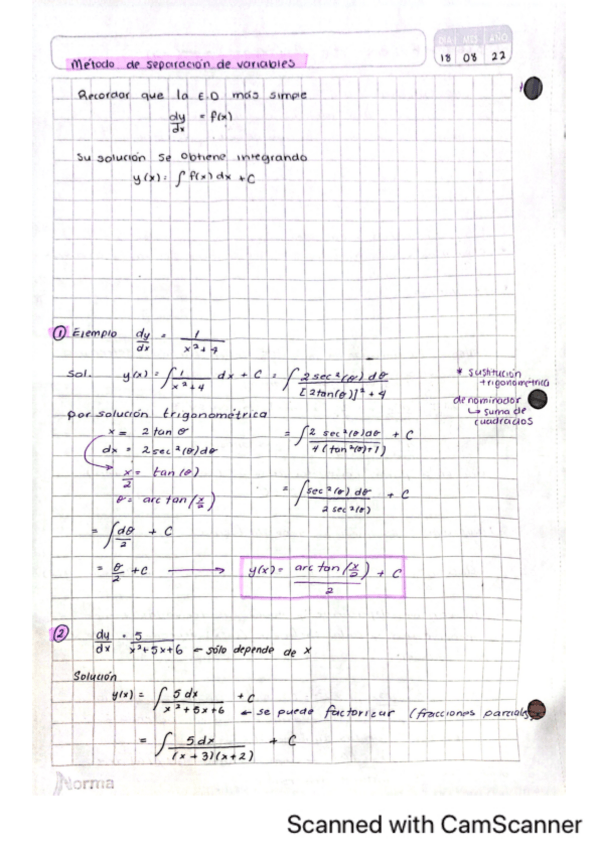 DIA MES AÑO
18 08 22
Método de separación de variables
Recordar que la E.D más simple
dy/dx = f(x)
Su solución se obtiene integrando
y(x) = ∫ f(x) dx + C
① Ejemplo dy/dx = 1/(x²+4)
Sol. y(x) = ∫ 1/(x²+4) dx + C = ∫ 2 sec²(θ) dθ / [2tan(θ)]² + 4
* sustitución trigonométrica
denominador
↳ suma de cuadrados
por solución trigonométrica
x = 2 tan θ
= ∫ 2 sec²(θ) dθ / 4(tan²(θ)+1) + C
dx = 2 sec²(θ) dθ
x/2 = tan(θ)
θ = arc tan(x/2)
= ∫ sec²(θ) dθ / 2 sec²(θ) + C
= ∫ dθ/2 + C
= θ/2 + C → y(x) = arc tan(x/2) / 2 + C
② dy/dx = 5/(x²+5x+6) ← sólo depende de x
Solución
y(x) = ∫ 5 dx / (x²+5x+6) + C
← se puede factorizar (fracciones parciales)
= ∫ 5 dx / (x+3)(x+2) + C
Norma
Scanned with CamScanner